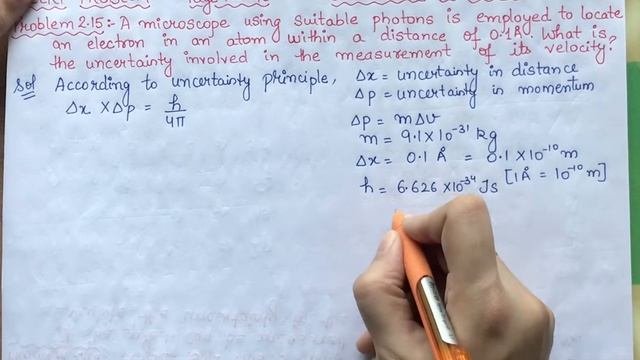 Problem 2.15:- A microscope using suitable photons is employed to locate
an electron in an atom within a distance of 0.1Å. What is
the uncertainty involved in the measurement of its velocity?
Sol According to uncertainty principle,
Δx × Δp = h/4π
Δx = uncertainty in distance
Δp = uncertainty in momentum
Δp = mΔv
m = 9.1×10⁻³¹ kg
Δx = 0.1 Å = 0.1×10⁻¹⁰ m
[1Å = 10⁻¹⁰ m]
h = 6.626 ×10⁻³⁴ Js